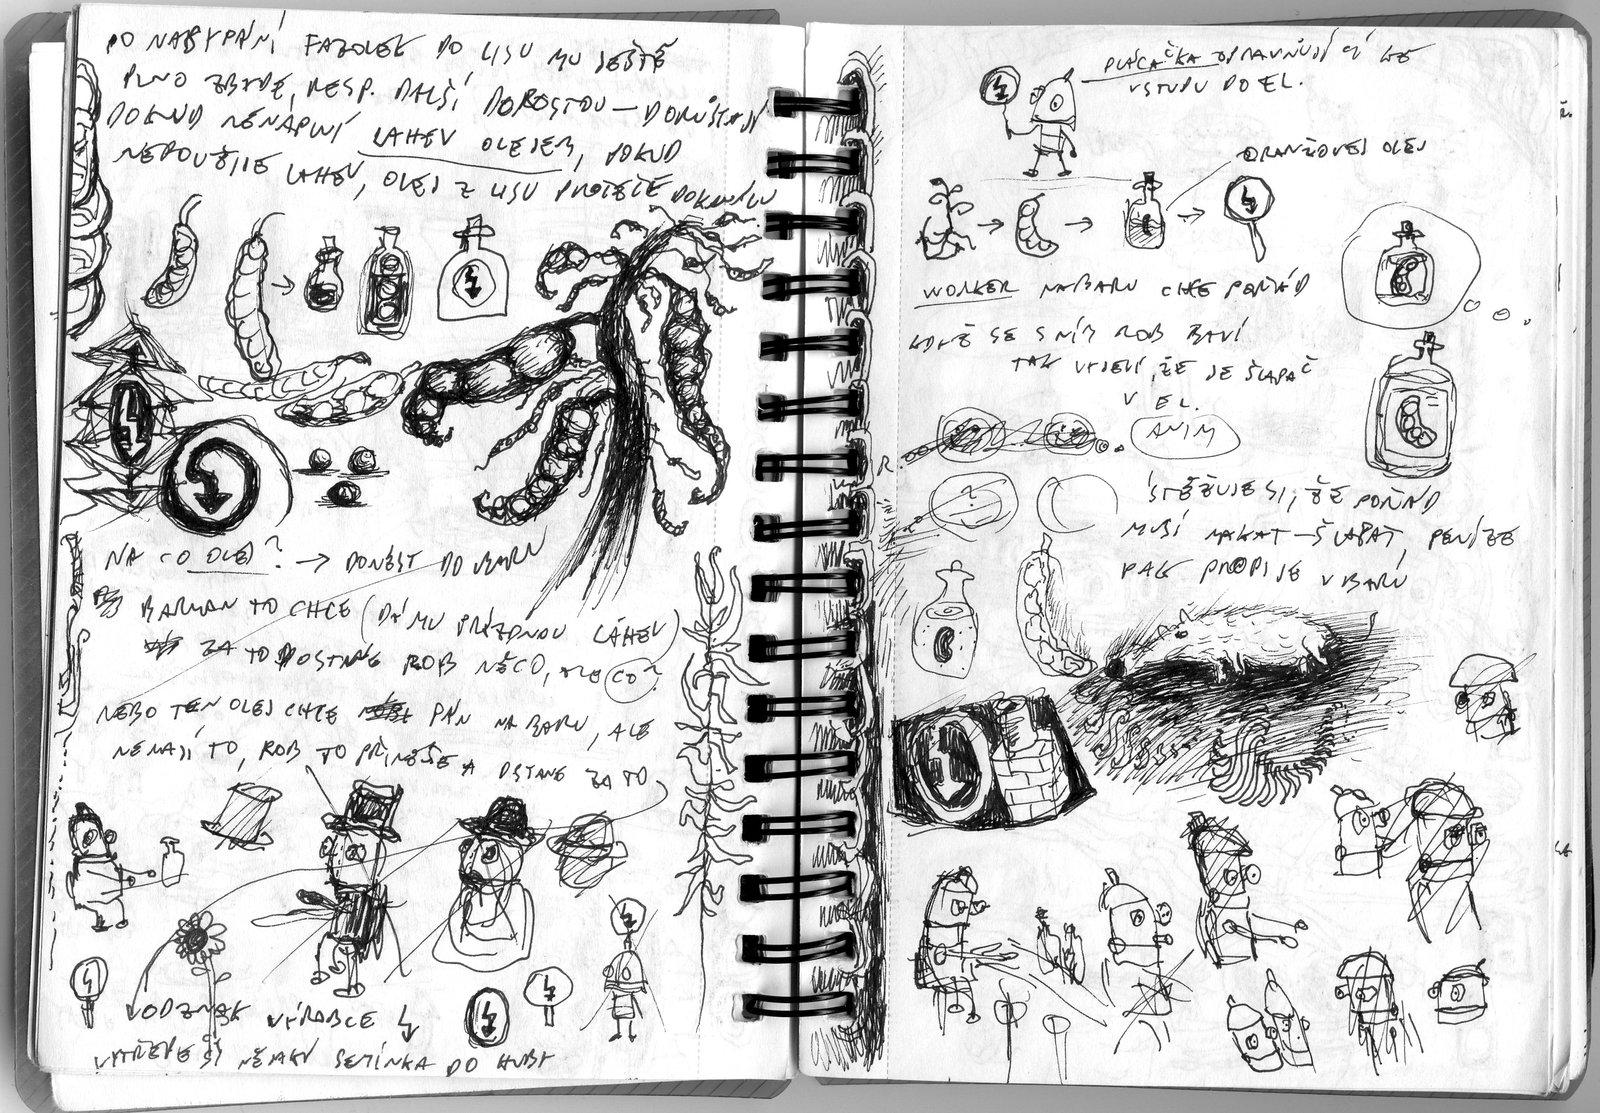 PO NASYPÁNÍ FAZOLEK DO LISU MU JEŠTĚ
PLNO ZBYDE, RESP. DALŠÍ DOROSTOU —
DOKUD NENAPLNÍ LAHEV OLEJEM, POKUD
NEPOUŽIJE LAHEV, OLEJ Z LISU PROTEČE
NA CO OLEJ? → DONÉST DO BARU
BARMAN TO CHCE (DÁ MU PRÁZDNOU LÁHEV)
ZA TO DOSTANE ROB NĚCO, ALE CO?
NEBO TEN OLEJ CHCE PÁN NA BARU, ALE
NEMAJÍ TO, ROB TO PŘINESE A DSTANE ZA TO
ODZNAK VÝROBCE
VYTŘEPE SI NĚJAKÁ SEMÍNKA DO HUBY
PLÁCAČKA OPRAVŇUJÍCÍ KE
VSTUPU DO EL.
ORANŽOVEJ OLEJ
WORKER NA BARU CHCE POŘÁD
KDYŽ SE S NÍM ROB BAVÍ
TAK VYJEVÍ, ŽE JE ŠLAPAČ
V EL.
ANIM
STĚŽUJE SI, ŽE POŘÁD
MUSÍ MAKAT – ŠLAPAT, PENÍZE
PAK PROPIJE V BARU